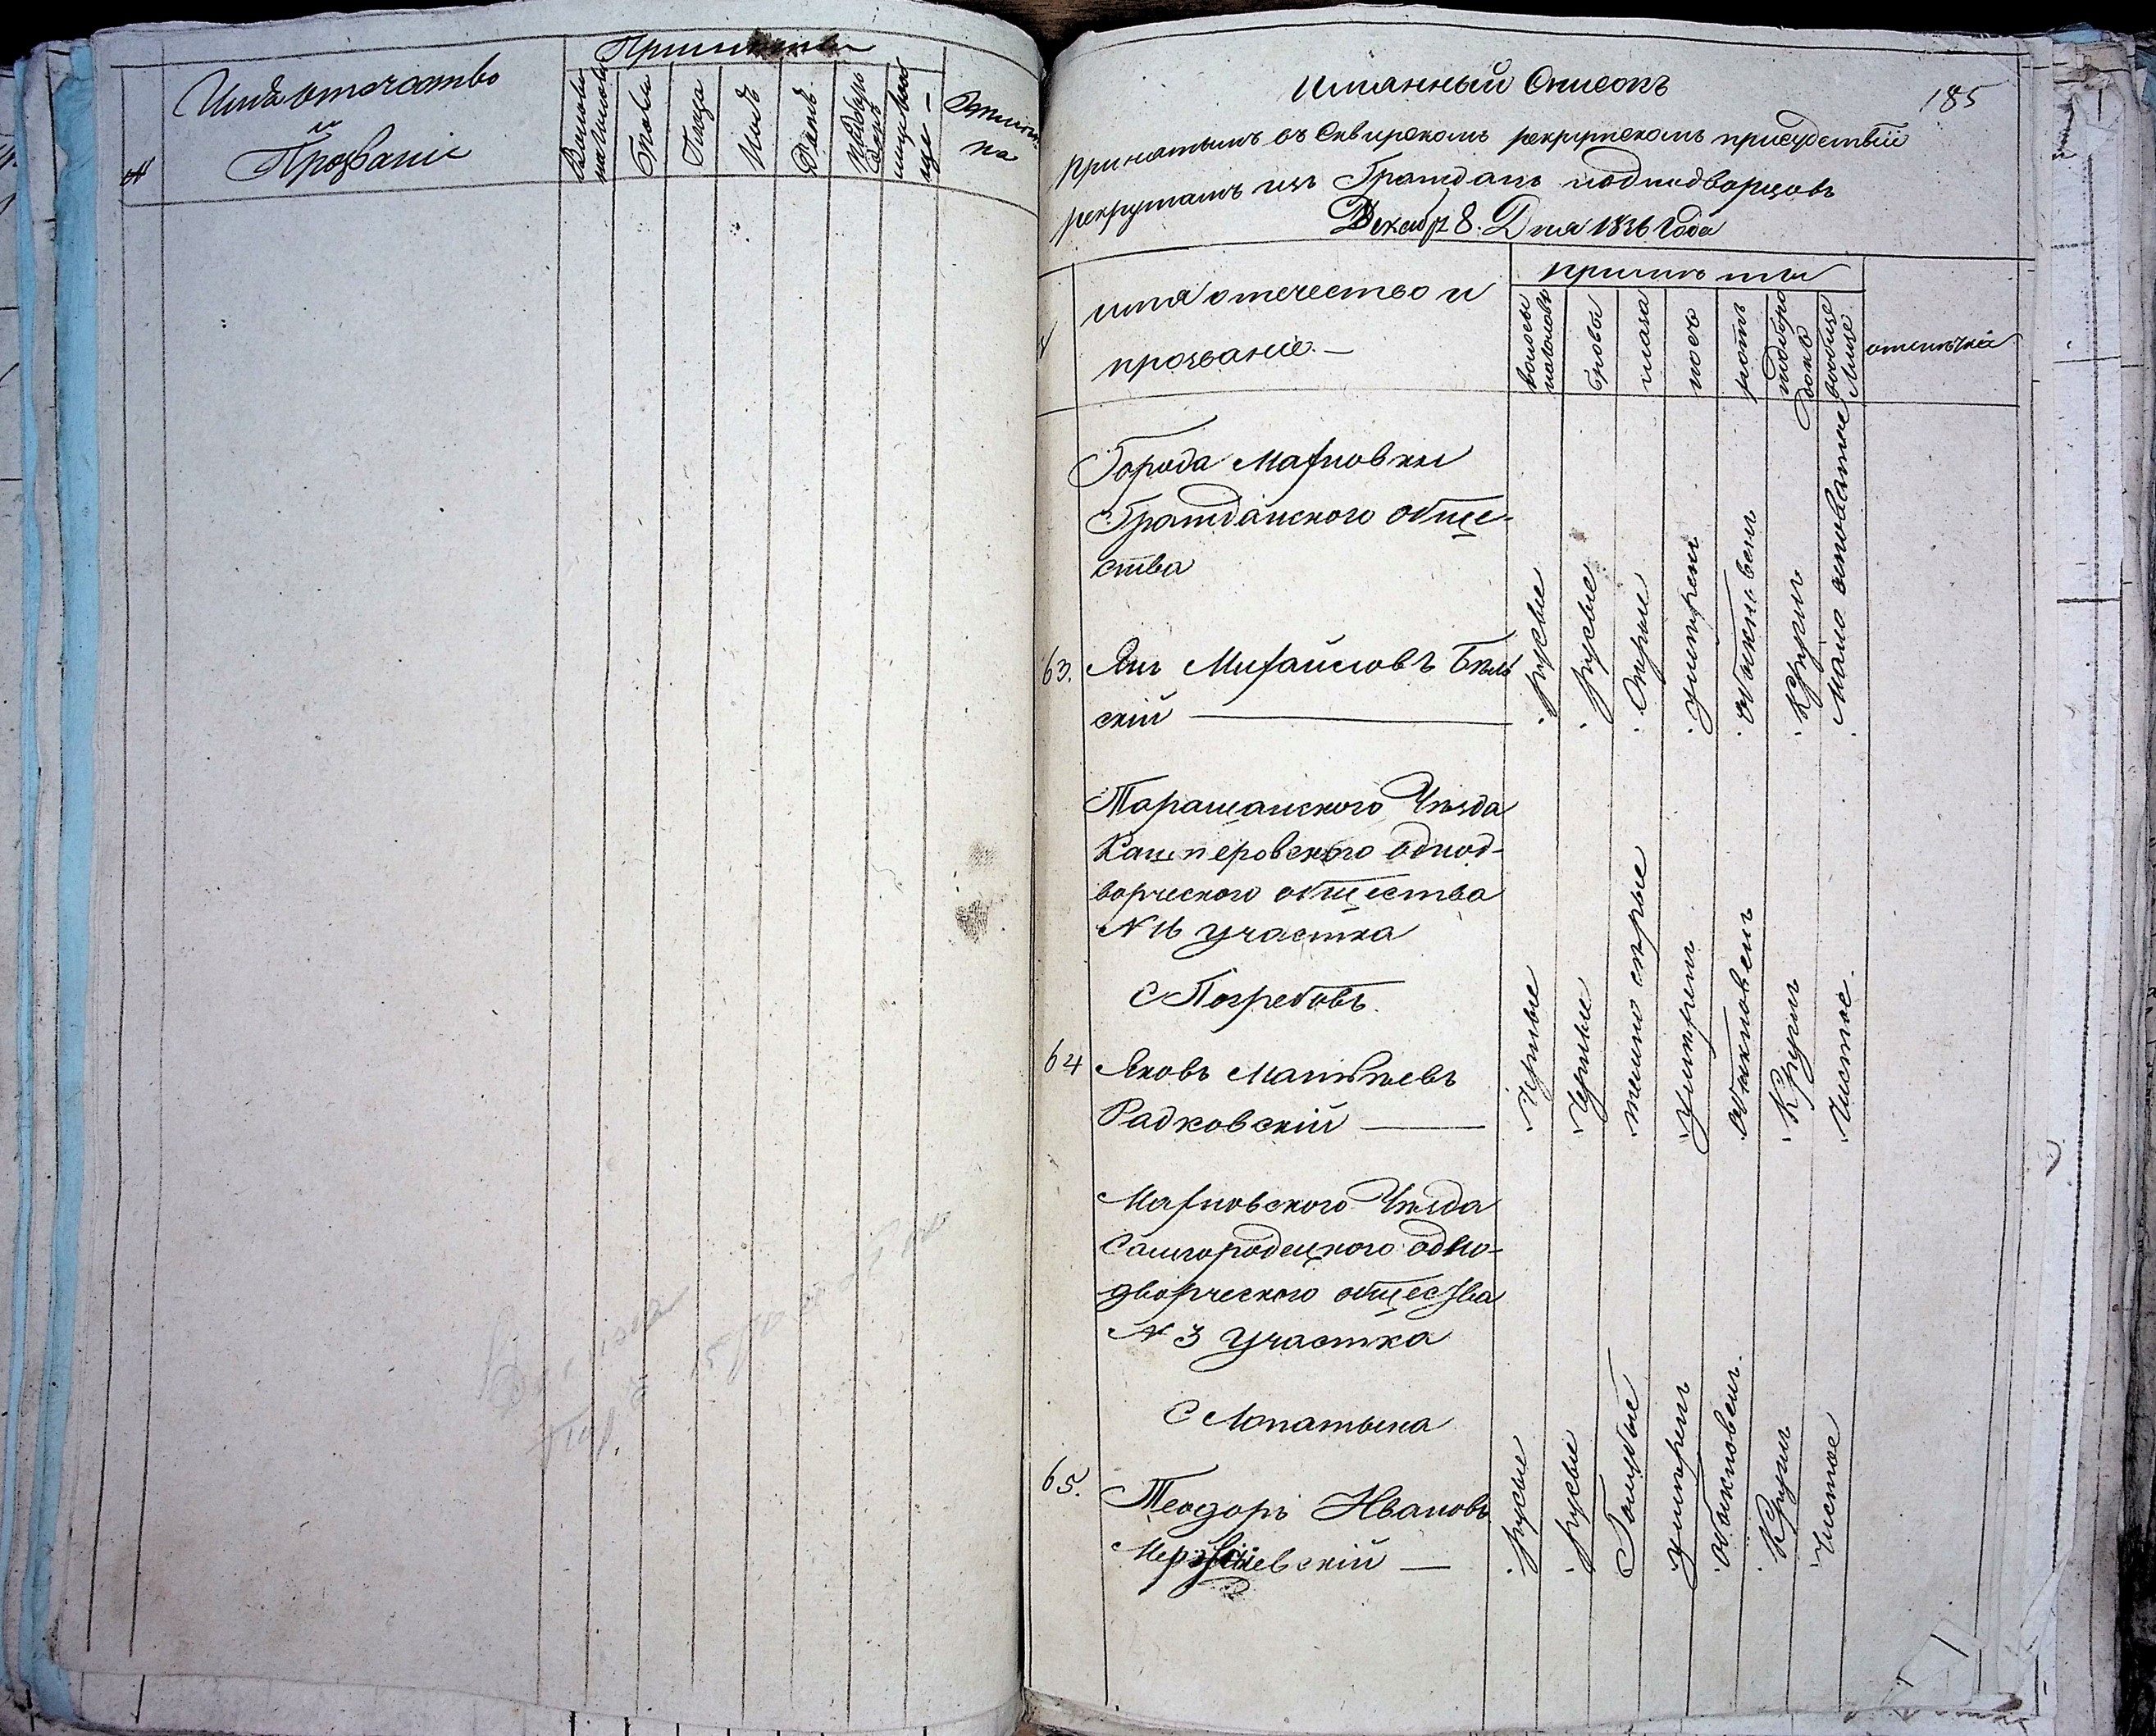 Имя отчество
и
Прозвание
№
Приметы
Волосы
на голове
Брови
Глаза
Носъ
Ротъ
Подборо
докъ
лице
Отмет
ка
185
Имянный Списокъ
принятымъ въ Сквирскомъ рекрутскомъ присудствіи
рекрутамъ изъ Гражданъ иоднодворцовъ
Декабря 8. Дня 1836 Года
имя отечество и
прозваніе. —
приметы
волосы
наголовѣ
брови
глаза
носъ
ротъ
подборо
докъ
вообще
лице
отмѣтка
Города Махновки
Гражданского обще-
ства
63. Янъ Михайловъ Бѣль
скій —
русые
русые
Сѣрые
умѣренъ
обыкновенъ
Круглъ
мало осповатое
Таращанского Уѣзда
Кашперовского однод-
ворческого общества
N 16 участка
С Погребовъ.
64 Яковъ Матвѣевъ
Радковскій —
Черные
Черные
темно сѣрые
умѣренъ
обыкновенъ
Круглъ
Чистое.
Махновского Уѣзда
Самгородецкого одно-
дворческого общества
N 3 Участка
С Лопатына
65. Теодоръ Ивановъ
русые
русые
Голубые
умѣренъ
обыкновенъ.
Круглъ
Чистое